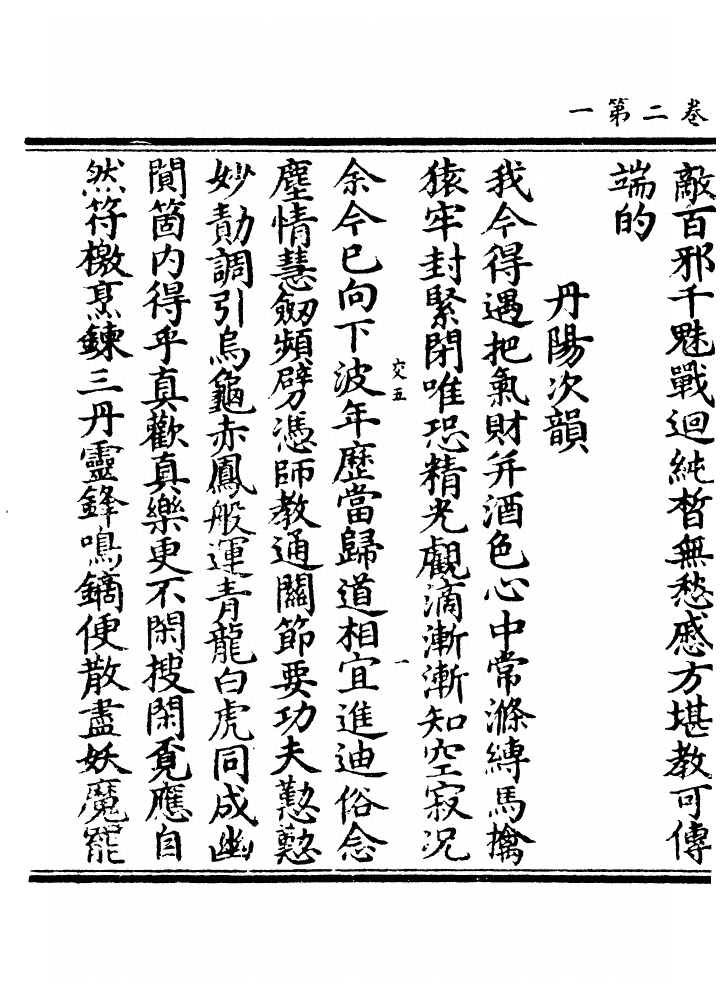 卷二第一
敵百邪千魅戰迴純晳無愁慼方堪教可傳
端的
丹陽次韻
我今得遇把氣財并酒色心中常滌縛馬擒
猿牢封緊閉唯恐精光覷滴漸漸知空寂況
交五
一
余今已向下波年歷當歸道相宜進迪俗念
塵情慧劒頻劈憑師教通關節要功夫懃懃
妙勣調引烏龜赤鳳般運青龍白虎同成幽
闃箇内得乎真歡真樂更不閑搜閑覔應自
然符檄烹鍊三丹靈鋒鳴鏑便散盡妖魔罷